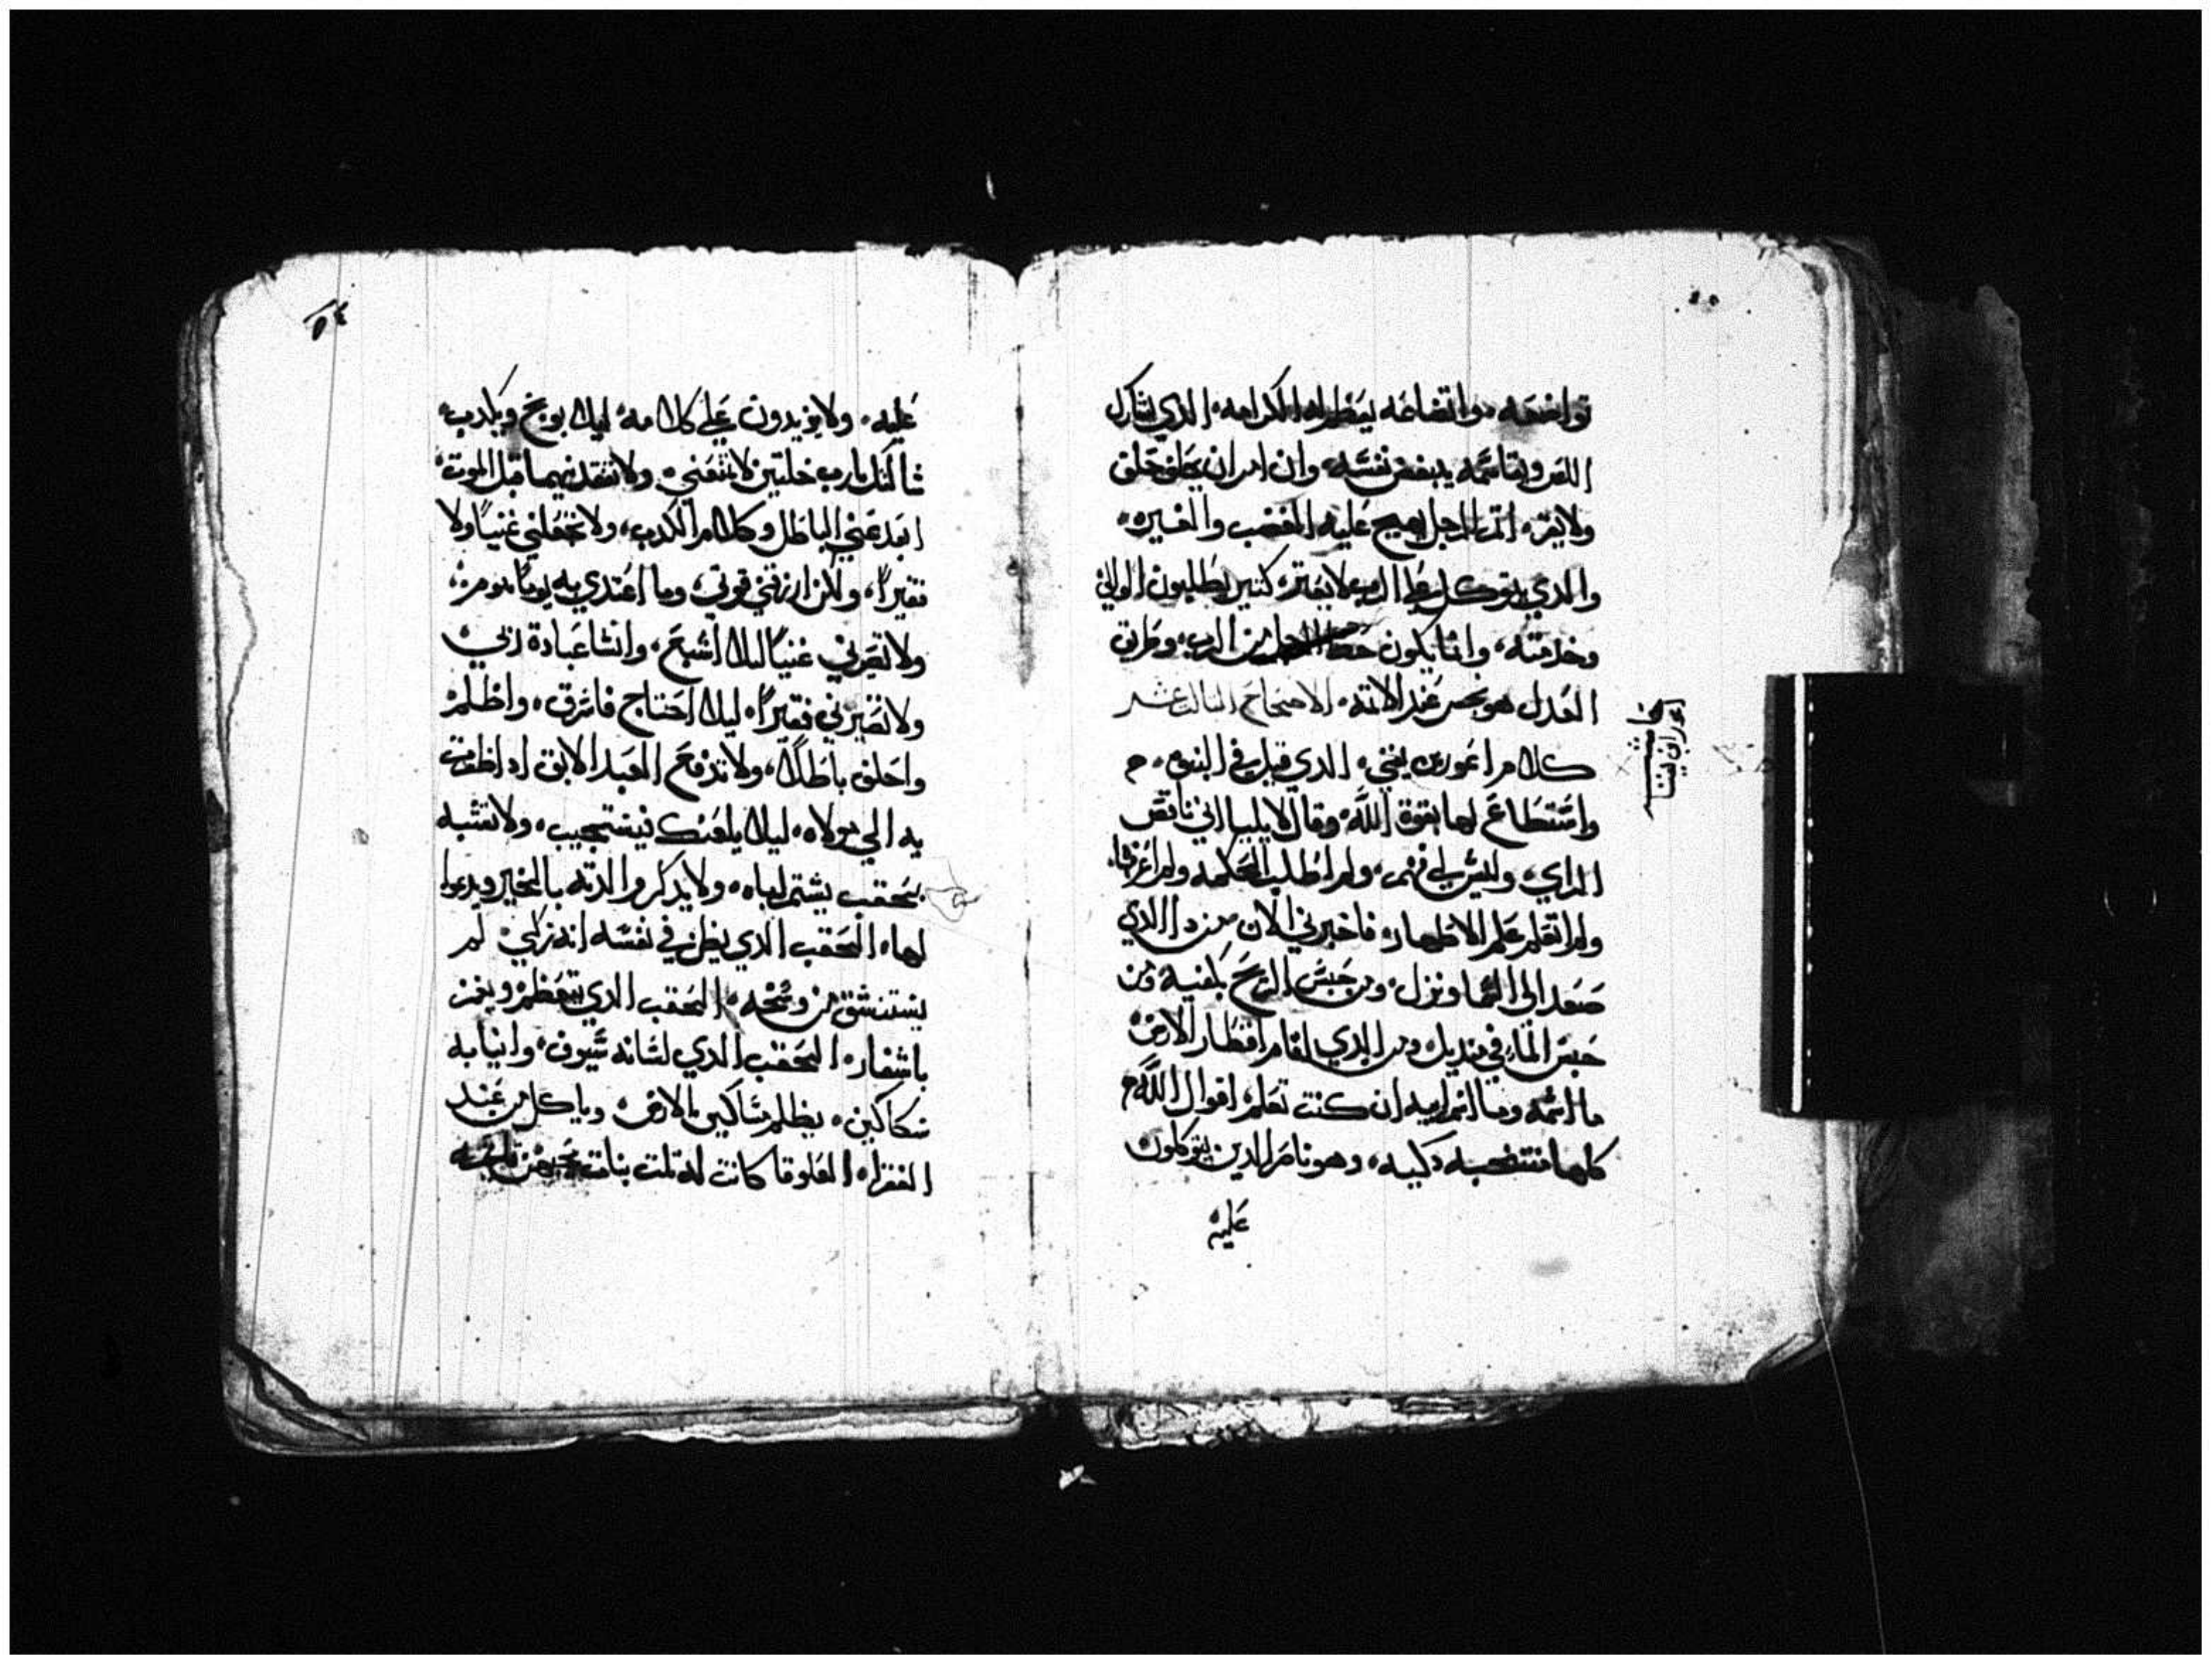 تواضعه، واتضاعه يعظم له الكرامه، الدي يشارك
اللص ويقاسمه يبغض نفسه، وان امر ان يحلف حلف
ولا يقر، اتم الرجل يهيج عليه الغضب والغيره،
والدي يتوكل على الرب لا يعتر، كتير يطلبون الوالي
وخدمته، وانما يكون من الرب، وطريق
العدل هو عند الاتمه، الاصحاح التالت عشر
كلام اغور بن يقي، الدي قبل في النبوه، م
واستطاع لها بقوة الله، وقال لايليا اني ناقص
الراي، وليس لي فهم، ولم اطلب الحكمه ولم اعرفها،
ولم اتعلم علم الاطهار، فاخبرني الان من دا الدي
صعد الى السما ونزل، ومن حبس الريح بكفيه ومن
حبس الما في منديل، ومن الدي اقام اقطار الارض
ما اسمه وما اسم ابيه ان كنت تعلم، اقوال الله م
كلها منتخبه دكيه، وهو ناصر الدين يتوكلون
عليه
عليه، ولا يزيدون على كلامه، ليلا يوبخ ويكدب،
سالتك يارب خلتين لا تمنعني، ولا تفقدنيهما قبل الموت،
ابعد عني الباطل وكلام الكدب، ولا تجعلني غنيًا ولا
فقيرًا، ولكن ارزقني قوتي، وما اغتدي به يومًا بيوم،
ولا تصيرني غنيًا ليلا اشبع، وانسا عبادة ربي
ولا تصيرني فقيرًا، ليلا احتاج فاسرق، واظلم
واحلف باطلًا، ولا تدفع العبد الابق ادا ظفرت
به الى مولاه، ليلا يلعنك فيستجيب، ولا تتشبه
بحقب يشتم اباه، ولا يدكر والدته بالخير ويدعوا
لها، الحقب الدي يظن في نفسه انه زكي، لم
يستنشق من وسخه، الحقب الدي يتعظم ويغمز
باشفاره، الحقب الدي لسانه سيوف، وانيابه
سكاكين، يظلم مساكين الارض، وياكل من عند
الفقرا، العلوقا كانت له تلت بنات